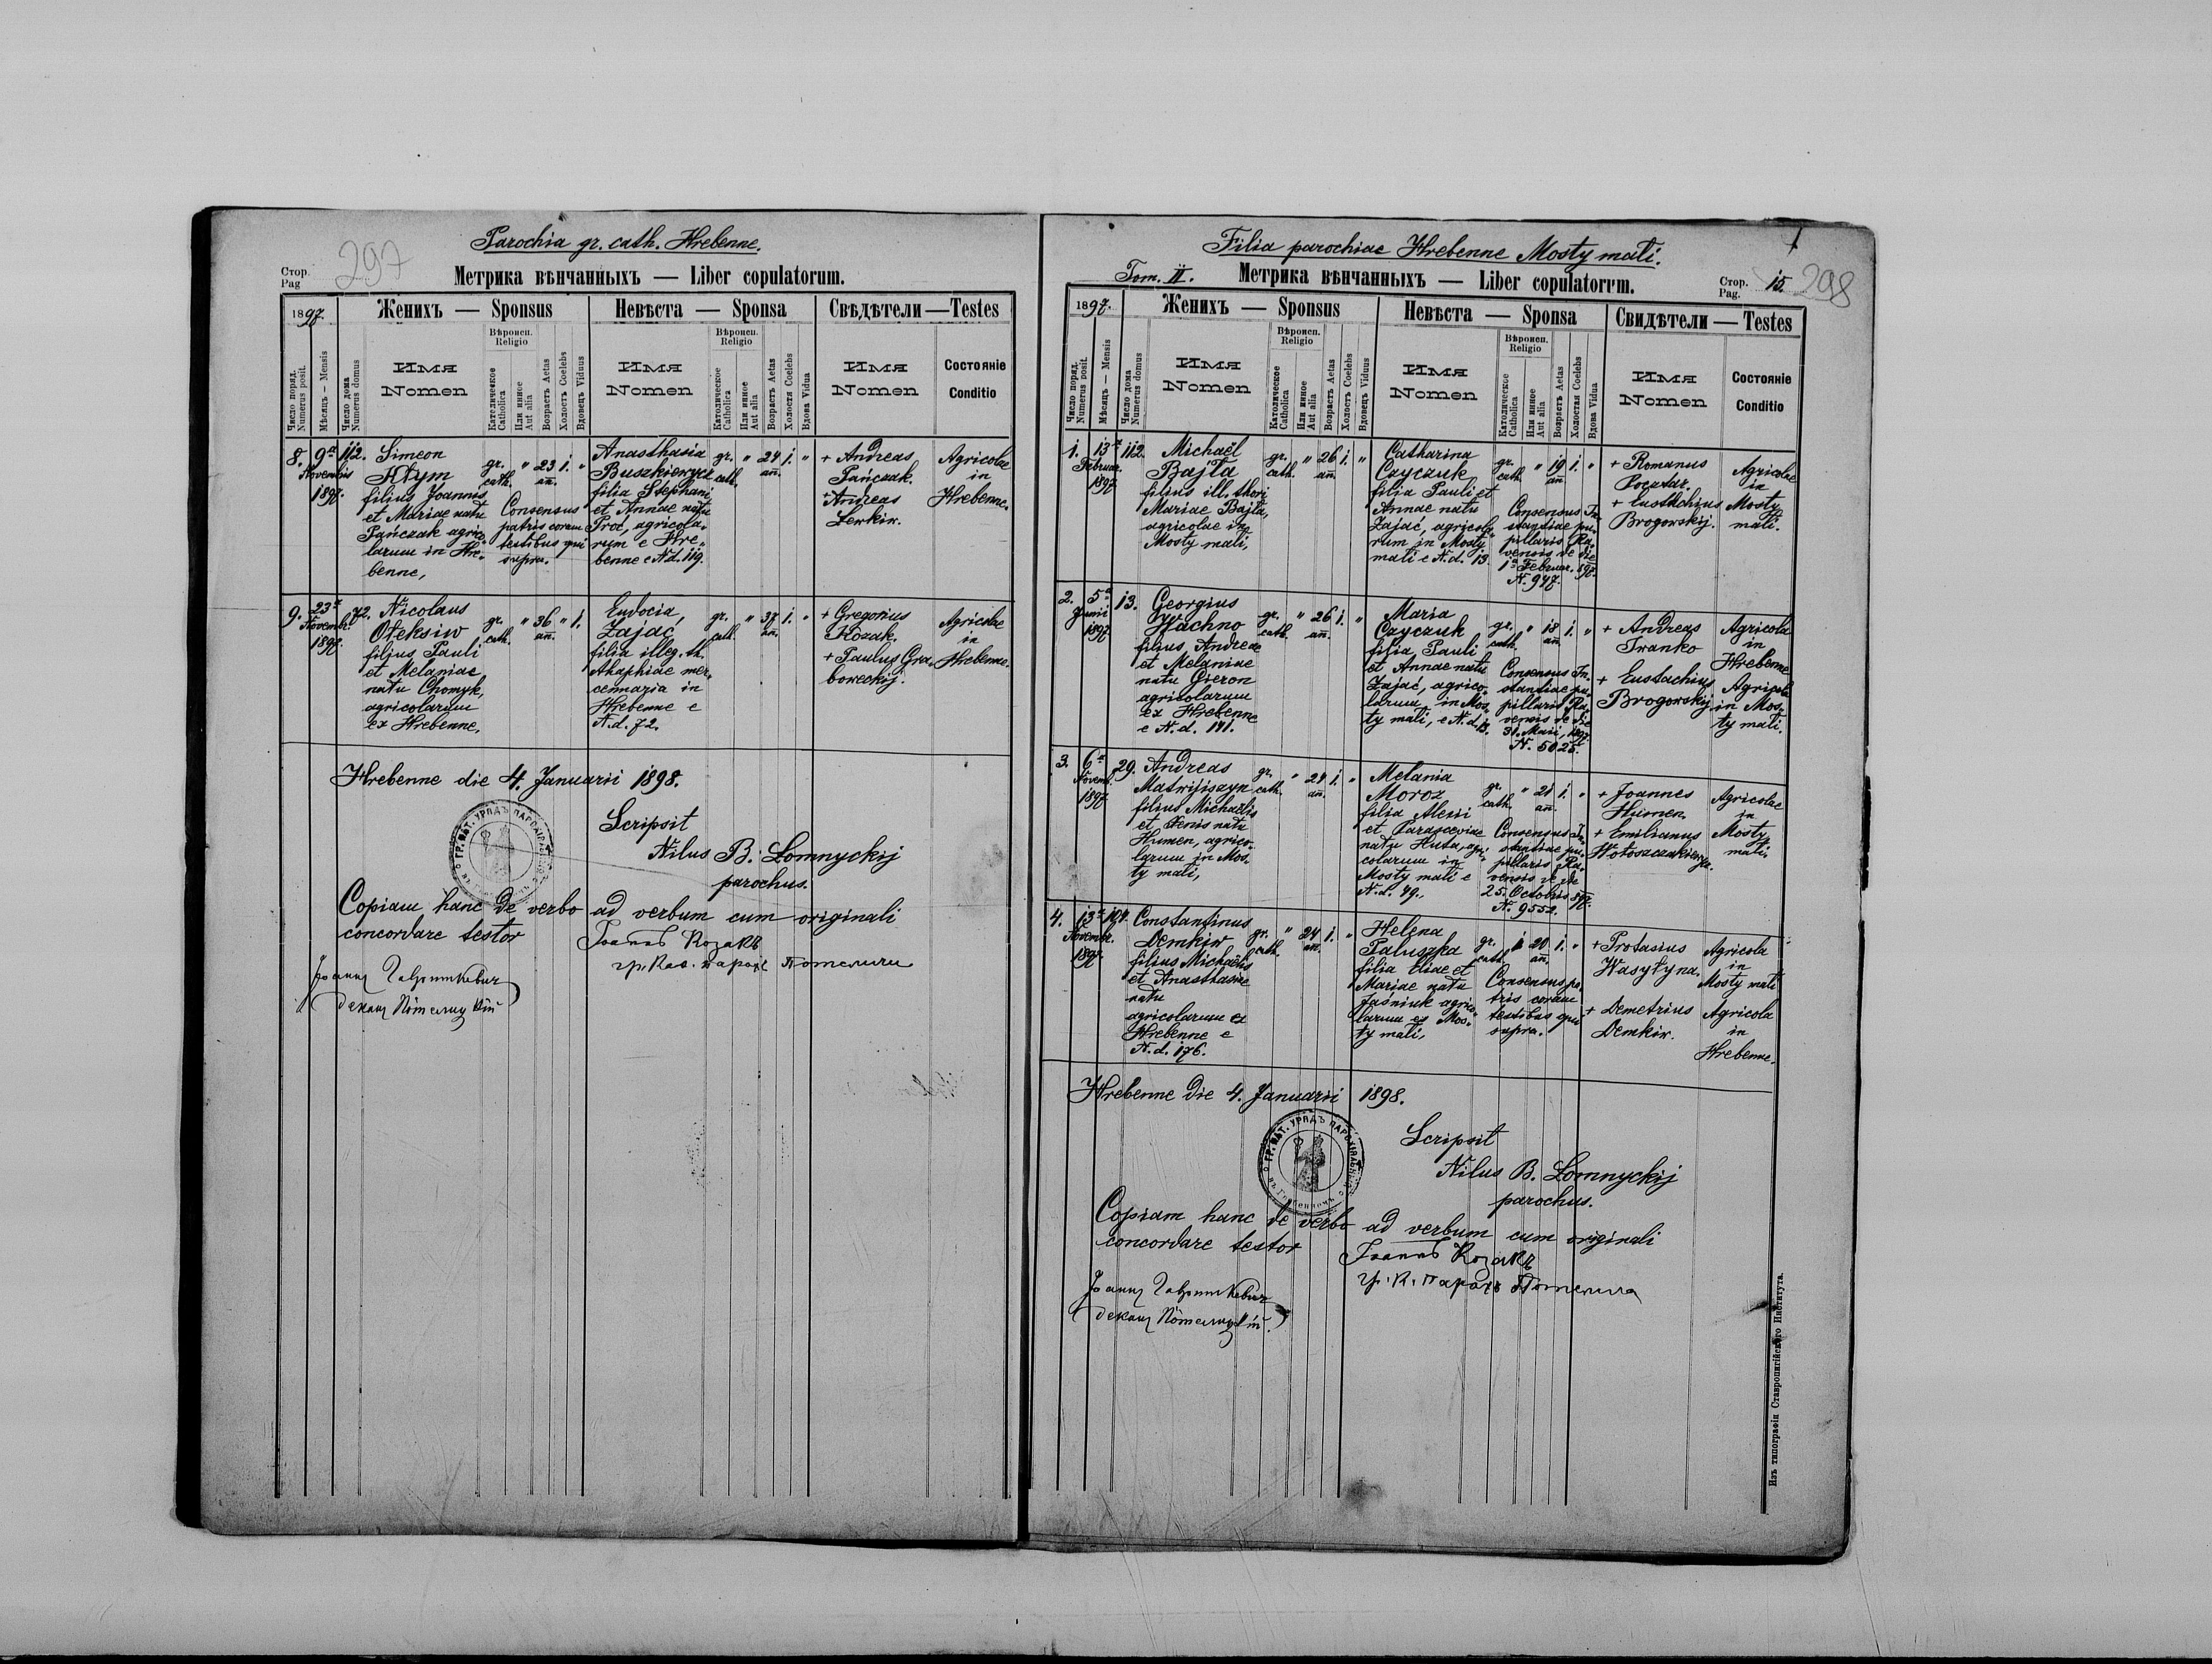 297
Parochia gr. cath. Hrebenne.
Стор.
Pag
Метрика вѣнчанныхъ — Liber copulatorum.
1897.
Женихъ — Sponsus
Невѣста — Sponsa
Свѣдѣтели — Testes
Число поряд.
Numerus posit.
Мѣсяцъ — Mensis
Число дома
Numerus domus
Имя
Nomen
Вѣроисп.
Religio
Католическое
Catholica
Или инное
Aut alia
Возрастъ Aetas
Холостъ Coelebs
Вдовецъ Viduus
Имя
Nomen
Вѣроисп.
Religio
Католическое
Catholica
Или инное
Aut alia
Возрастъ Aetas
Холостя Coelebs
Вдова Vidua
Имя
Nomen
Состояніе
Conditio
8.
9a
Novembris
1897.
112.
Simeon
Kłym
filius Joannis
et Mariae natu
Pańczak agrico-
larum in Hre-
benne,
gr.
cath.
"
23
an.
1.
"
Consensus
patris coram
testibus qui
supra.
Anasthasia
Buszkiewycz
filia Stephani
et Annae natu
Proć, agricola-
rum e Hre-
benne e N.d. 119.
gr.
cath.
"
24
an.
1.
"
+ Andreas
Pańczak.
+ Andreas
Lewkiw.
Agricolae
in
Hrebenne.
9.
23a
Novembr.
1897.
72.
Nicolaus
Ołeksiw
filius Pauli
et Melaniae
natu Chomyk,
agricolarum
ex Hrebenne.
gr.
cath.
"
36
an.
"
1.
Eudocia,
Zając
filia illeg. th.
Ahaphiae mer-
cennaria in
Hrebenne e
N.d. 72.
gr.
cath.
"
37
an.
1.
"
+ Gregorius
Kozak.
+ Paulus Gra-
boweckij.
Agricolae
in
Hrebenne.
Hrebenne die 4. Januarii 1898.
Scripsit
Nilus B. Łomnyckij
parochus.
Copiam hanc de verbo ad verbum cum originali
concordare testor
Іоаннъ Козакъ
гр. кат. парохъ Потелича
298
Filia parochiae Hrebenne Mosty mali.
Tom. II.
Метрика вѣнчанныхъ — Liber copulatorum.
Стор.
Pag.
15.
1897.
Женихъ — Sponsus
Невѣста — Sponsa
Свидѣтели — Testes
Число поряд.
Numerus posit.
Мѣсяцъ — Mensis
Число дома
Numerus domus
Имя
Nomen
Вѣроисп.
Religio
Католическое
Catholica
Или инное
Aut alia
Возрастъ Aetas
Холостъ Coelebs
Вдовецъ Viduus
Имя
Nomen
Вѣроисп.
Religio
Католическое
Catholica
Или инное
Aut alia
Возрастъ Aetas
Холостая Coelebs
Вдова Vidua
Имя
Nomen
Состояніе
Conditio
1.
13a
Februar.
1897
112.
Michaël
Bajta
filius ill. thori
Mariae Bajta,
agricolae in
Mosty mali,
gr.
cath.
"
26
an.
1.
"
Catharina
Czyczuk
filia Pauli et
Annae natu
Zająć, agricola-
rum in Mosty
mali e N.d. 13.
gr.
cath.
"
19
an.
1.
"
Consensus In-
stantiae pu-
pillaris Ra-
vensis de die
1a Februar. 897.
N. 947.
+ Romanus
+ Eustachius
Brogowskij.
Agricolae
in
Mosty
mali.
2.
5a
Junii
1897
13.
Georgius
Wachno
filius Andreae
et Melaniae
natu Gieron
agricolarum
ex Hrebenne
e N.d. 171.
gr.
cath.
"
26
an.
1.
"
Maria
Czyczuk
filia Pauli
et Annae natu
Zająć, agrico-
larum in Mos-
ty mali, e N.d. 13.
gr.
cath.
"
18
an.
1.
"
Consensus In-
stantiae pu-
pillaris Ra-
vensis de die
31. Maii, 1897.
N. 5025.
+ Andreas
Iwanko
+ Eustachius
Brogowskij
Agricola
in
Hrebenne
Agricola
in Mos-
ty mali.
3.
6a
Novemb.
1897.
29.
Andreas
Matwijiszyn
filius Michaëlis
et Xeniis natu
Humen, agrico-
larum in Mos-
ty mali,
gr.
cath.
"
24
an.
1.
"
Melania
Moroz
filia Alexii
et Parasceviae
natu Huta, agri-
colarum in
Mosty mali e
N.d. 49.
gr.
cath.
"
21
an.
1.
"
Consensus In-
stantiae pu-
pillaris Ra-
vensis de die
25. Octobris 897.
N. 9552.
+ Joannes
Humen
+ Emilianus
Wołoszczakiewycz.
Agricolae
in
Mosty
mali.
4.
13a
Novembr.
1897.
104.
Constantinus
Demkiw
filius Michaëlis
et Anasthasiae
natu
agricolarum ex
Hrebenne e
N.d. 176.
gr.
cath.
"
24
an.
1.
"
Helena
Paluszka
filia Eliae et
Mariae natu
Jaśniuk agrico-
larum ex Mos-
ty mali,
gr.
cath.
20
an.
1.
"
Consensus pa-
tris coram
testibus qui
supra.
+ Protasius
Wasyłyna.
+ Demetrius
Demkiw.
Agricola
in
Mosty mali
Agricola
in
Hrebenne.
Hrebenne die 4. Januarii 1898.
Scripsit
Nilus B. Łomnyckij
parochus.
Copiam hanc de verbo ad verbum cum originali
concordare testor
Іоаннъ Козакъ
гр. к. парохъ Потелича
Изъ типографіи Ставропигійского Института.